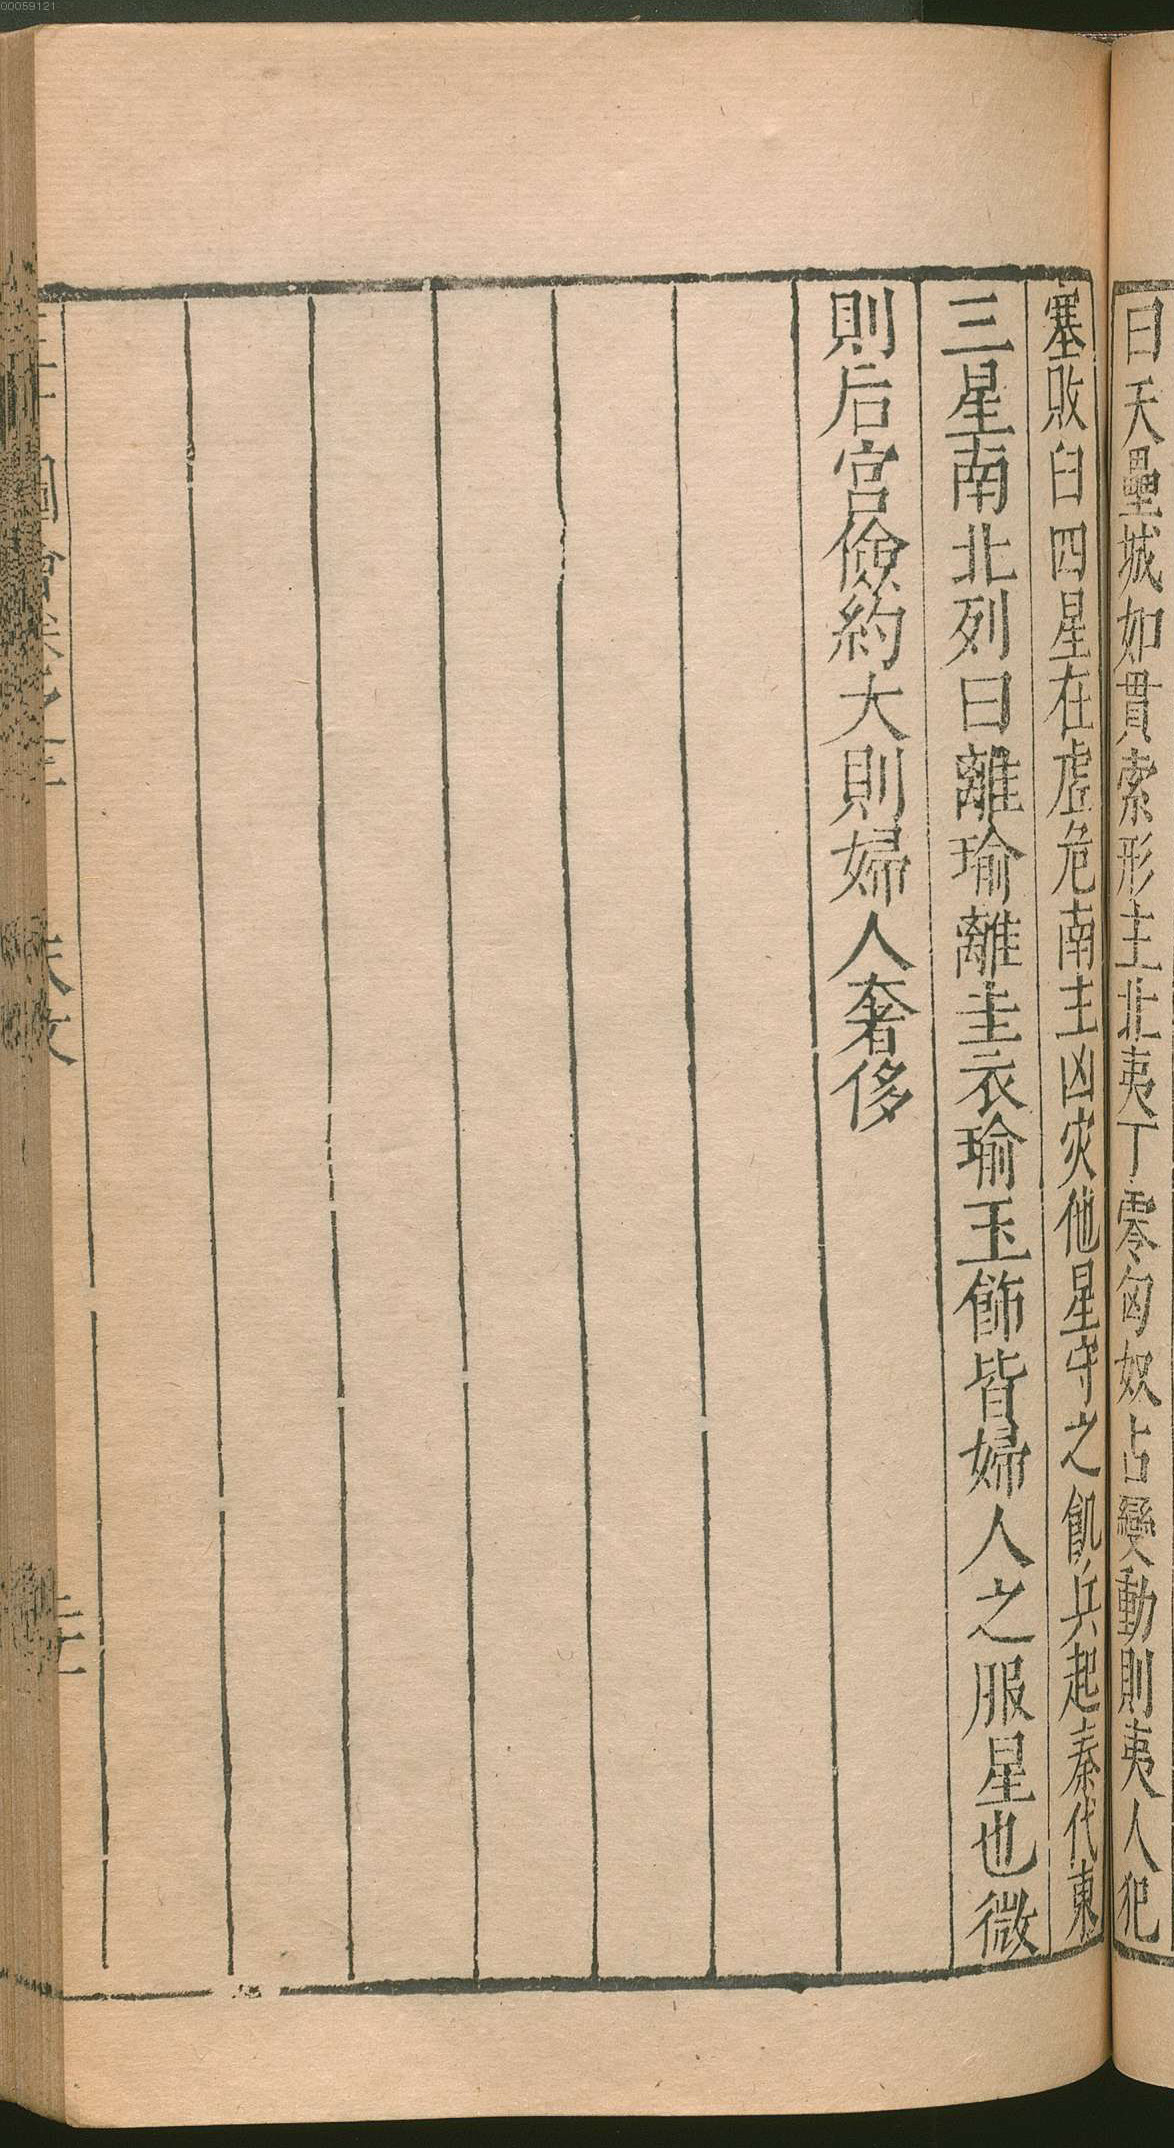 00059121
曰天壘城如貫索形主北夷丁零匈奴占變動則夷人犯
塞敗臼四星在虛危南主凶灾他星守之飢兵起秦代東
三星南北列曰離瑜離圭衣瑜玉飾皆婦人之服星也微
則后宮儉約大則婦人奢侈